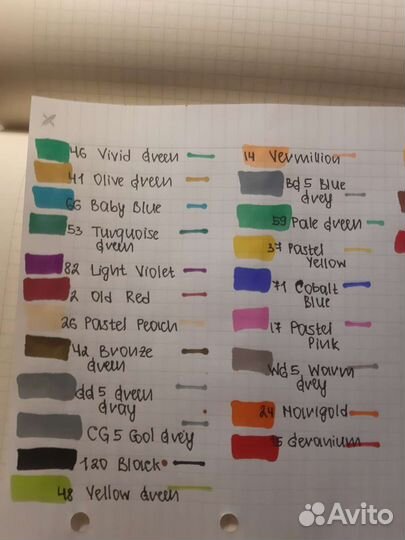 46 Vivid Green
41 Olive Green
66 Baby Blue
53 Turquoise
Green
82 Light Violet
2 Old Red
26 Pastel Peach
42 Bronze
Green
GG5 Green
Gray
CG5 Cool Grey
120 Black
48 Yellow Green
14 Vermilion
BG5 Blue
Grey
59 Pale Green
37 Pastel
Yellow
71 Cobalt
Blue
17 Pastel
Pink
WG5 Warm
Grey
24 Marigold
Geranium
Avito